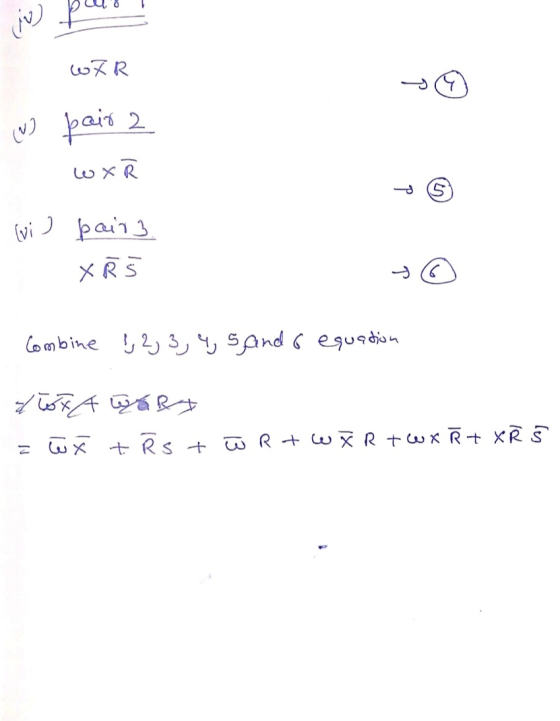 (iv) pair 1
w X̅ R → ④
(v) pair 2
w X R̅ → ⑤
(vi) pair 3
X R̅ S̅ → ⑥
Combine 1, 2, 3, 4, 5, and 6 equation
= w̅ X̅ + R̅ S + w̅ R + w X̅ R + w X R̅ + X R̅ S̅